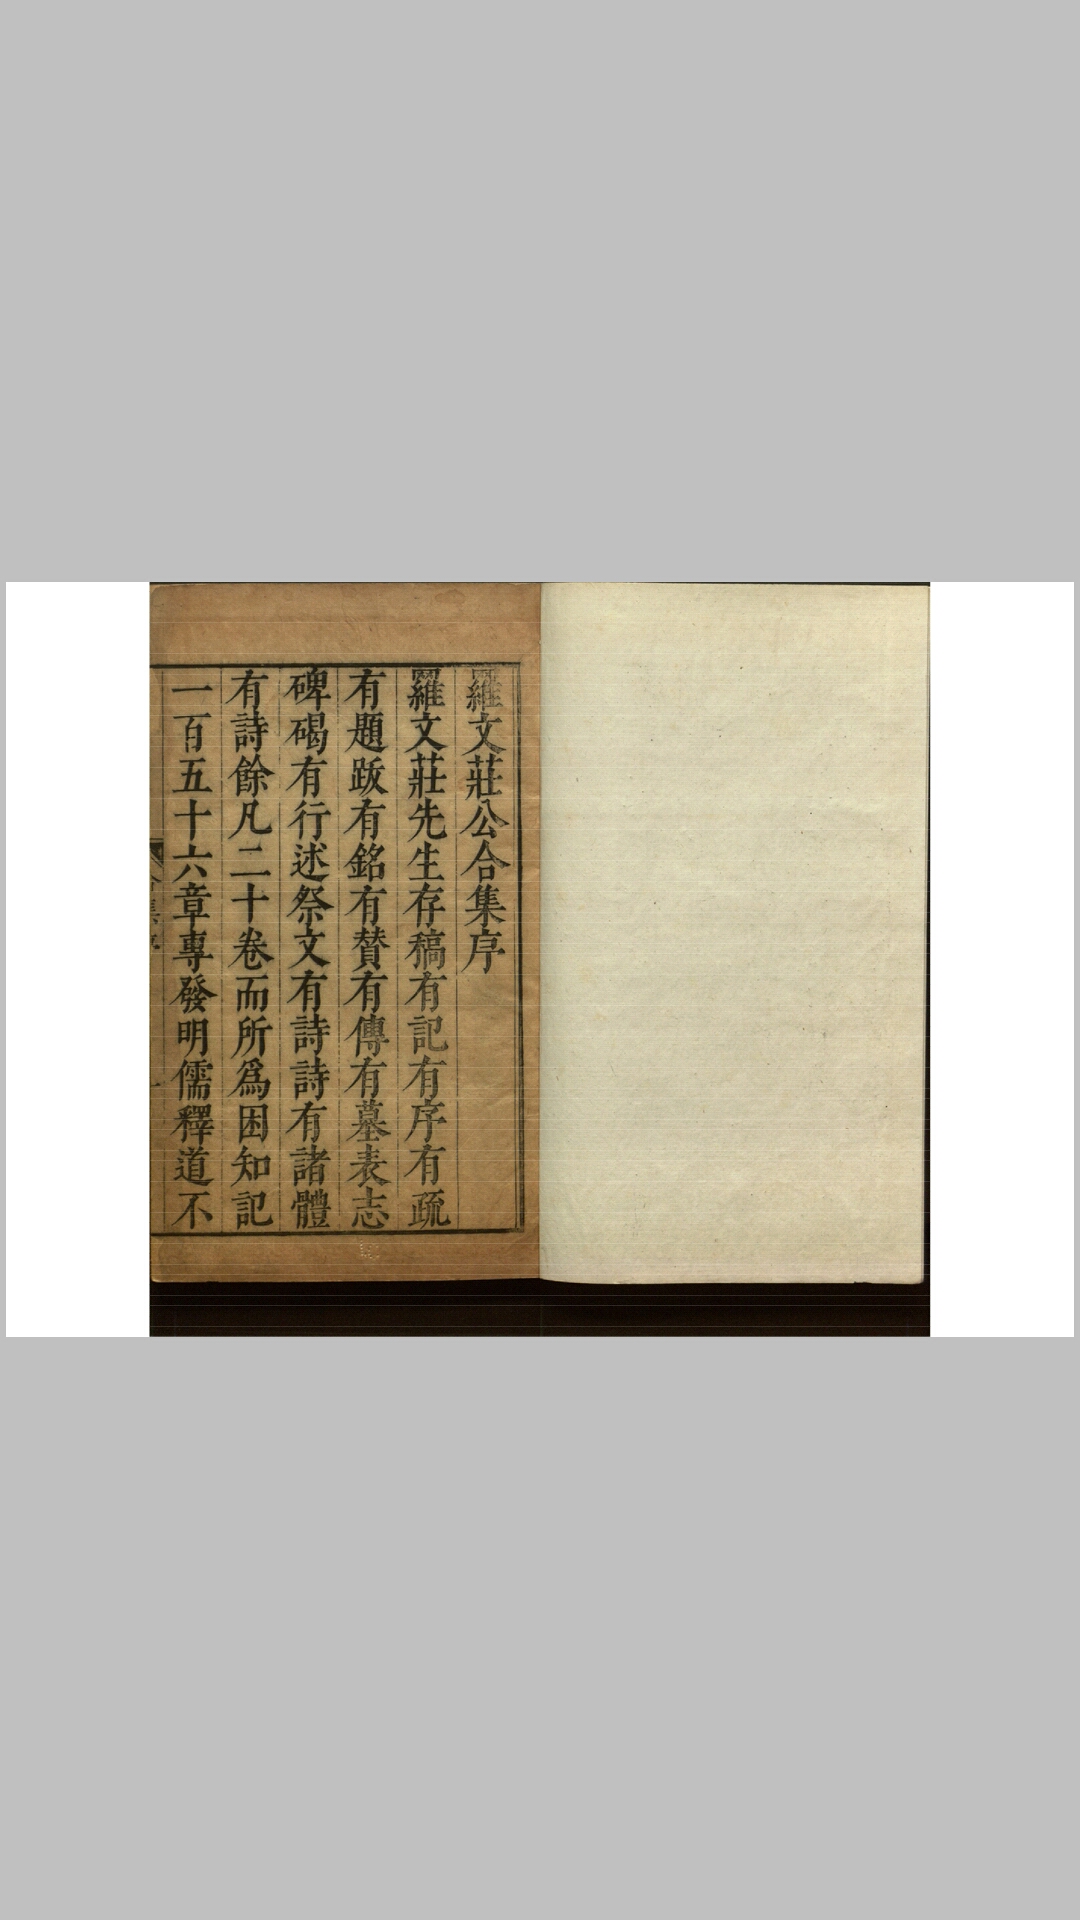 羅文莊公合集序
羅文莊先生存稿有記有序有疏
有題跋有銘有贊有傳有墓表志
碑碣有行述祭文有詩詩有諸體
有詩餘凡二十卷而所爲困知記
一百五十六章專發明儒釋道不